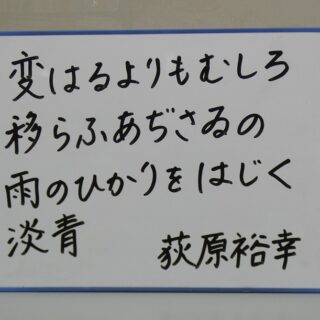 変はるよりもむしろ
移らふあぢさゐの
雨のひかりをはじく
淡青 荻原裕幸